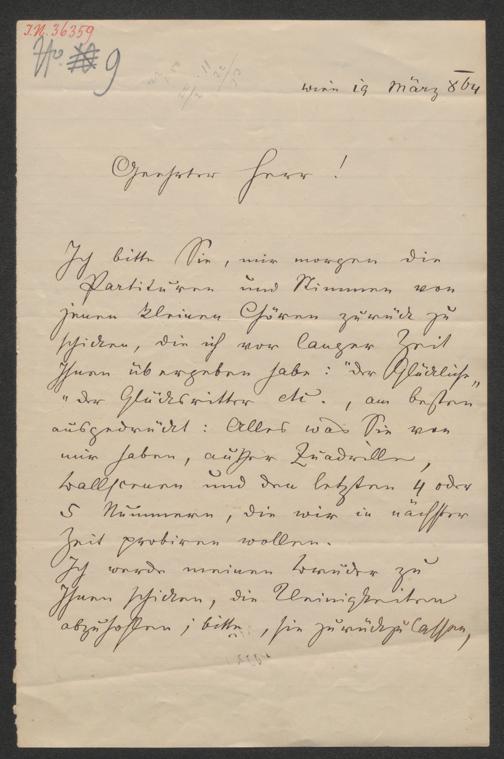 I.N. 36359
No. 9
Wien 19 März 864
Geehrter Herr!
Ich bitte Sie, mir morgen die
Partituren und Stimmen von
jenen kleinen Chören zurück zu
schicken, die ich vor langer Zeit
Ihnen übergeben habe: "der Glückliche„
"der Glücksritter etc., am besten
ausgedrückt: Alles was Sie von
mir haben, außer Quadrille,
Ballscenen und den letzten 4 oder
5 Nummern, die wir in nächster
Zeit probiren wollen.
Ich werde meinen Bruder zu
Ihnen schicken, die Kleinigkeiten
abzuholen; bitte, sie zurückzulassen,